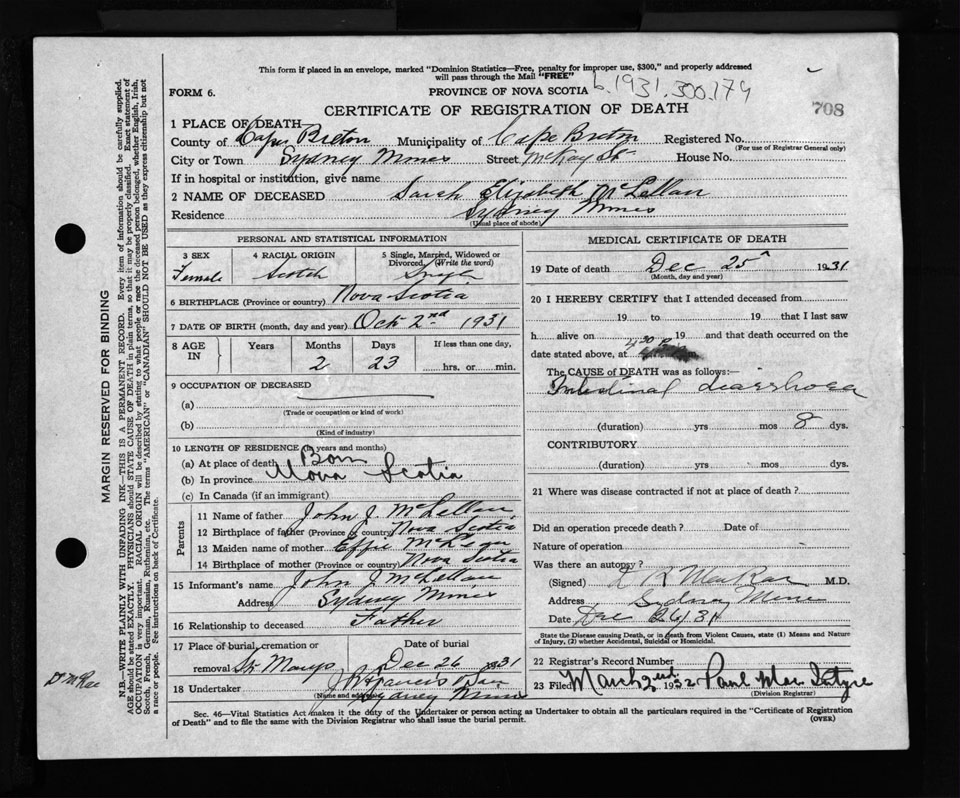 This form if placed in an envelope, marked "Dominion Statistics—Free, penalty for improper use, $300," and properly addressed
will pass through the Mail "FREE"
FORM 6.
PROVINCE OF NOVA SCOTIA
b.1931.300.174
CERTIFICATE OF REGISTRATION OF DEATH
708
1 PLACE OF DEATH—
County of Cape Breton Municipality of Cape Breton Registered No.
(For use of Registrar General only)
City or Town Sydney Mines Street McKay St. House No.
If in hospital or institution, give name
2 NAME OF DECEASED Sarah Elizabeth McLellan
Residence Sydney Mines
(Usual place of abode)
PERSONAL AND STATISTICAL INFORMATION
3 SEX 4 RACIAL ORIGIN 5 Single, Married, Widowed or
Divorced, (Write the word)
Female Scotch Single
6 BIRTHPLACE (Province or country) Nova Scotia
7 DATE OF BIRTH (month, day and year) Oct 2nd 1931
8 AGE IN Years Months Days If less than one day,
2 23 hrs. or min.
9 OCCUPATION OF DECEASED
(a)
(Trade or occupation or kind of work)
(b)
(Kind of industry)
10 LENGTH OF RESIDENCE (in years and months)
(a) At place of death Born
(b) In province Nova Scotia
(c) In Canada (if an immigrant)
Parents
11 Name of father John J. McLellan
12 Birthplace of father (Province or country) Nova Scotia
13 Maiden name of mother Effie
14 Birthplace of mother (Province or country) Nova Scotia
15 Informant's name John J. McLellan
Address Sydney Mines
16 Relationship to deceased Father
17 Place of burial, cremation or Date of burial
removal St. Marys Dec 26 1931
18 Undertaker J Francis
(Name and address) Sydney Mines
MEDICAL CERTIFICATE OF DEATH
19 Date of death Dec 25 1931
(Month, day and year)
20 I HEREBY CERTIFY that I attended deceased from
19 to 19 that I last saw
h alive on 19 and that death occurred on the
date stated above, at 4.30 P. m.
The CAUSE of DEATH was as follows:—
Intestinal diarrhoea
(duration) yrs mos 8 dys.
CONTRIBUTORY
(duration) yrs mos dys.
21 Where was disease contracted if not at place of death?
Did an operation precede death? Date of
Nature of operation
Was there an autopsy?
(Signed) MacRae M.D.
Address Sydney Mines
Date Dec 26/31
State the Disease causing Death, or in death from Violent Causes, state (1) Means and Nature
of Injury, (2) whether Accidental, Suicidal or Homicidal.
22 Registrar's Record Number
23 Filed March 2nd 1932 Paul MacIntyre
(Division Registrar)
Sec. 46—Vital Statistics Act makes it the duty of the Undertaker or person acting as Undertaker to obtain all the particulars required in the "Certificate of Registration
of Death" and to file the same with the Division Registrar who shall issue the burial permit. (OVER)
MARGIN RESERVED FOR BINDING
N.B.—WRITE PLAINLY WITH UNFADING INK—THIS IS A PERMANENT RECORD. Every item of information should be carefully supplied.
AGE should be stated EXACTLY. PHYSICIANS should STATE CAUSE OF DEATH in plain terms, so that it may be properly classified. Exact statement of
OCCUPATION is very important. RACIAL ORIGIN will be described by stating to what people or race the deceased person belonged, whether English, Irish,
Scotch, French, German, Russian, Ruthenian, etc. The terms "AMERICAN" or "CANADIAN" SHOULD NOT BE USED as they express citizenship but not
a race or people. See instructions on back of Certificate.
Dr McRae